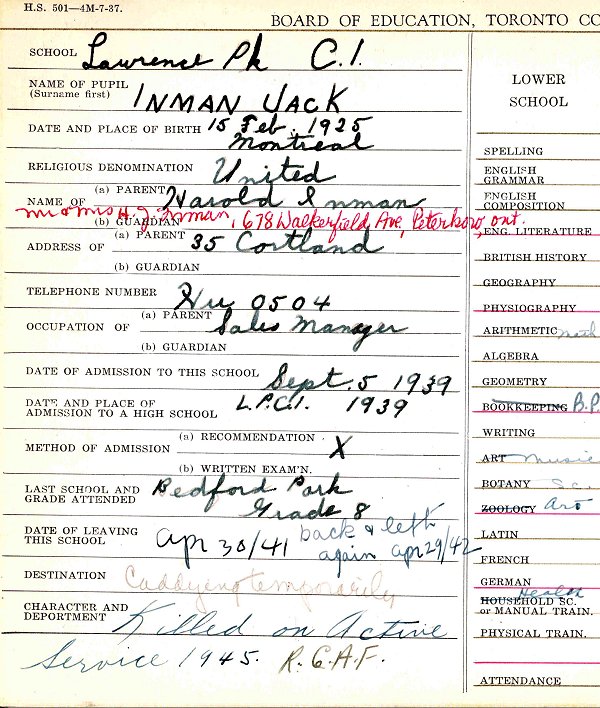 H.S. 501—4M-7-37.
BOARD OF EDUCATION, TORONTO CO
SCHOOL Lawrence Pk C.I.
NAME OF PUPIL
(Surname first) INMAN JACK
DATE AND PLACE OF BIRTH 15 Feb. 1925
Montreal
RELIGIOUS DENOMINATION United
NAME OF (a) PARENT Harold Inman
Mr & Mrs H. J. Inman, 678 Walkerfield Ave, Peterboro, Ont.
(b) GUARDIAN
ADDRESS OF (a) PARENT 35 Cortland
(b) GUARDIAN
TELEPHONE NUMBER Hu 0504
OCCUPATION OF (a) PARENT Sales Manager
(b) GUARDIAN
DATE OF ADMISSION TO THIS SCHOOL Sept. 5 1939
DATE AND PLACE OF
ADMISSION TO A HIGH SCHOOL L.P.C.I. 1939
METHOD OF ADMISSION (a) RECOMMENDATION X
(b) WRITTEN EXAM'N.
LAST SCHOOL AND
GRADE ATTENDED Bedford Park
Grade 8
DATE OF LEAVING
THIS SCHOOL Apr 30/41 back & left
again Apr 29/42
DESTINATION Caddying temporarily
CHARACTER AND
DEPORTMENT Killed on Active
Service 1945. R.C.A.F.
LOWER
SCHOOL
SPELLING
ENGLISH
GRAMMAR
ENGLISH
COMPOSITION
ENG. LITERATURE
BRITISH HISTORY
GEOGRAPHY
PHYSIOGRAPHY
ARITHMETIC Math
ALGEBRA
GEOMETRY
BOOKKEEPING B.P.
WRITING
ART Music
BOTANY Sc.
ZOOLOGY Art
LATIN
FRENCH
GERMAN
Health
HOUSEHOLD SC.
or MANUAL TRAIN.
PHYSICAL TRAIN.
ATTENDANCE